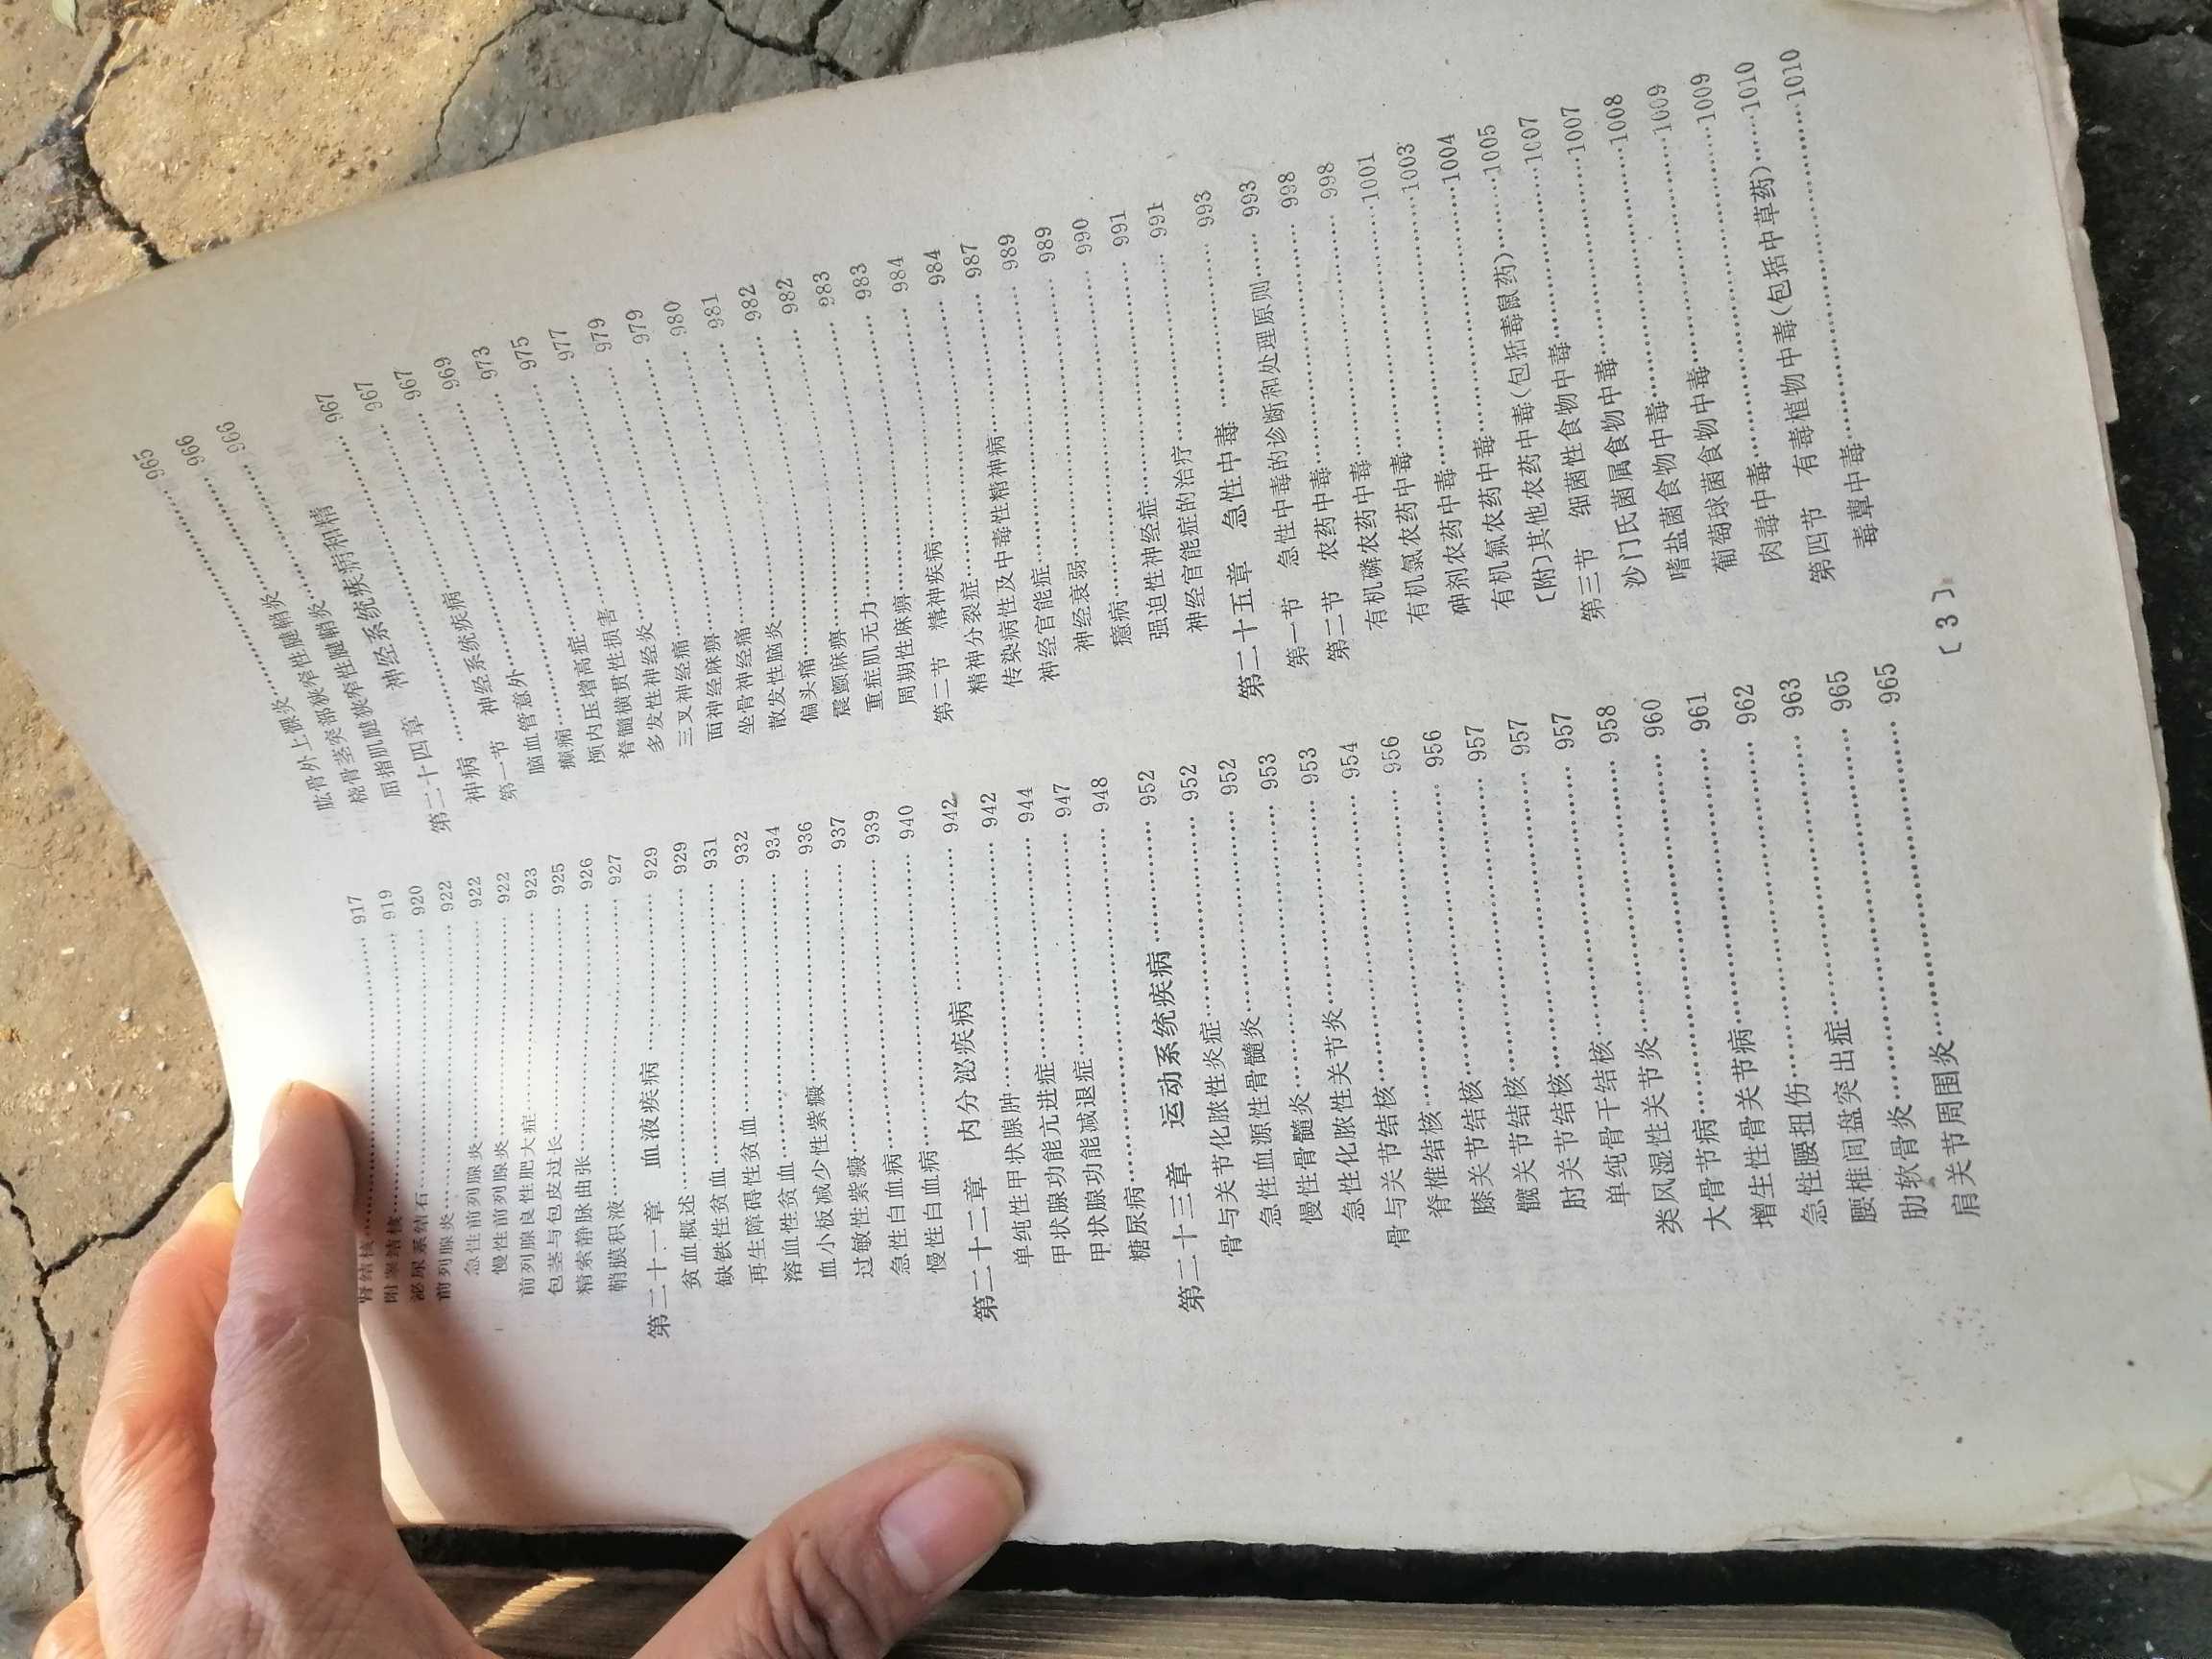 肾结核……917
附睾结核……919
泌尿系结石……920
前列腺炎……922
急性前列腺炎……922
慢性前列腺炎……922
前列腺良性肥大症……923
包茎与包皮过长……925
精索静脉曲张……926
鞘膜积液……927
第二十一章 血液疾病……929
贫血概述……929
缺铁性贫血……931
再生障碍性贫血……932
溶血性贫血……934
血小板减少性紫癜……936
过敏性紫癜……937
急性白血病……939
慢性白血病……940
第二十二章 内分泌疾病……942
单纯性甲状腺肿……942
甲状腺功能亢进症……944
甲状腺功能减退症……947
糖尿病……948
第二十三章 运动系统疾病……952
骨与关节化脓性炎症……952
急性血源性骨髓炎……952
慢性骨髓炎……953
急性化脓性关节炎……953
骨与关节结核……954
脊椎结核……956
膝关节结核……956
髋关节结核……957
肘关节结核……957
单纯骨干结核……957
类风湿性关节炎……958
大骨节病……960
增生性骨关节病……961
急性腰扭伤……962
腰椎间盘突出症……963
肋软骨炎……965
肩关节周围炎……965
肱骨外上髁炎……965
桡骨茎突部狭窄性腱鞘炎……966
屈指肌腱狭窄性腱鞘炎……966
第二十四章 神经系统疾病和精
神病……967
第一节 神经系统疾病……967
脑血管意外……967
癫痫……969
颅内压增高症……973
脊髓横贯性损害……975
多发性神经炎……977
三叉神经痛……979
面神经麻痹……979
坐骨神经痛……980
散发性脑炎……981
偏头痛……982
震颤麻痹……982
重症肌无力……983
周期性麻痹……983
第二节 精神疾病……984
精神分裂症……984
传染病性及中毒性精神病……987
神经官能症……989
神经衰弱……989
癔病……990
强迫性神经症……991
神经官能症的治疗……991
第二十五章 急性中毒……993
第一节 急性中毒的诊断和处理原则……993
第二节 农药中毒……998
有机磷农药中毒……998
有机氯农药中毒……1001
砷剂农药中毒……1003
有机氟农药中毒……1004
〔附〕其他农药中毒(包括毒鼠药)……1005
第三节 细菌性食物中毒……1007
沙门氏菌属食物中毒……1007
嗜盐菌食物中毒……1008
葡萄球菌食物中毒……1009
肉毒中毒……1009
第四节 有毒植物中毒(包括中草药)……1010
毒蕈中毒……1010
〔3〕